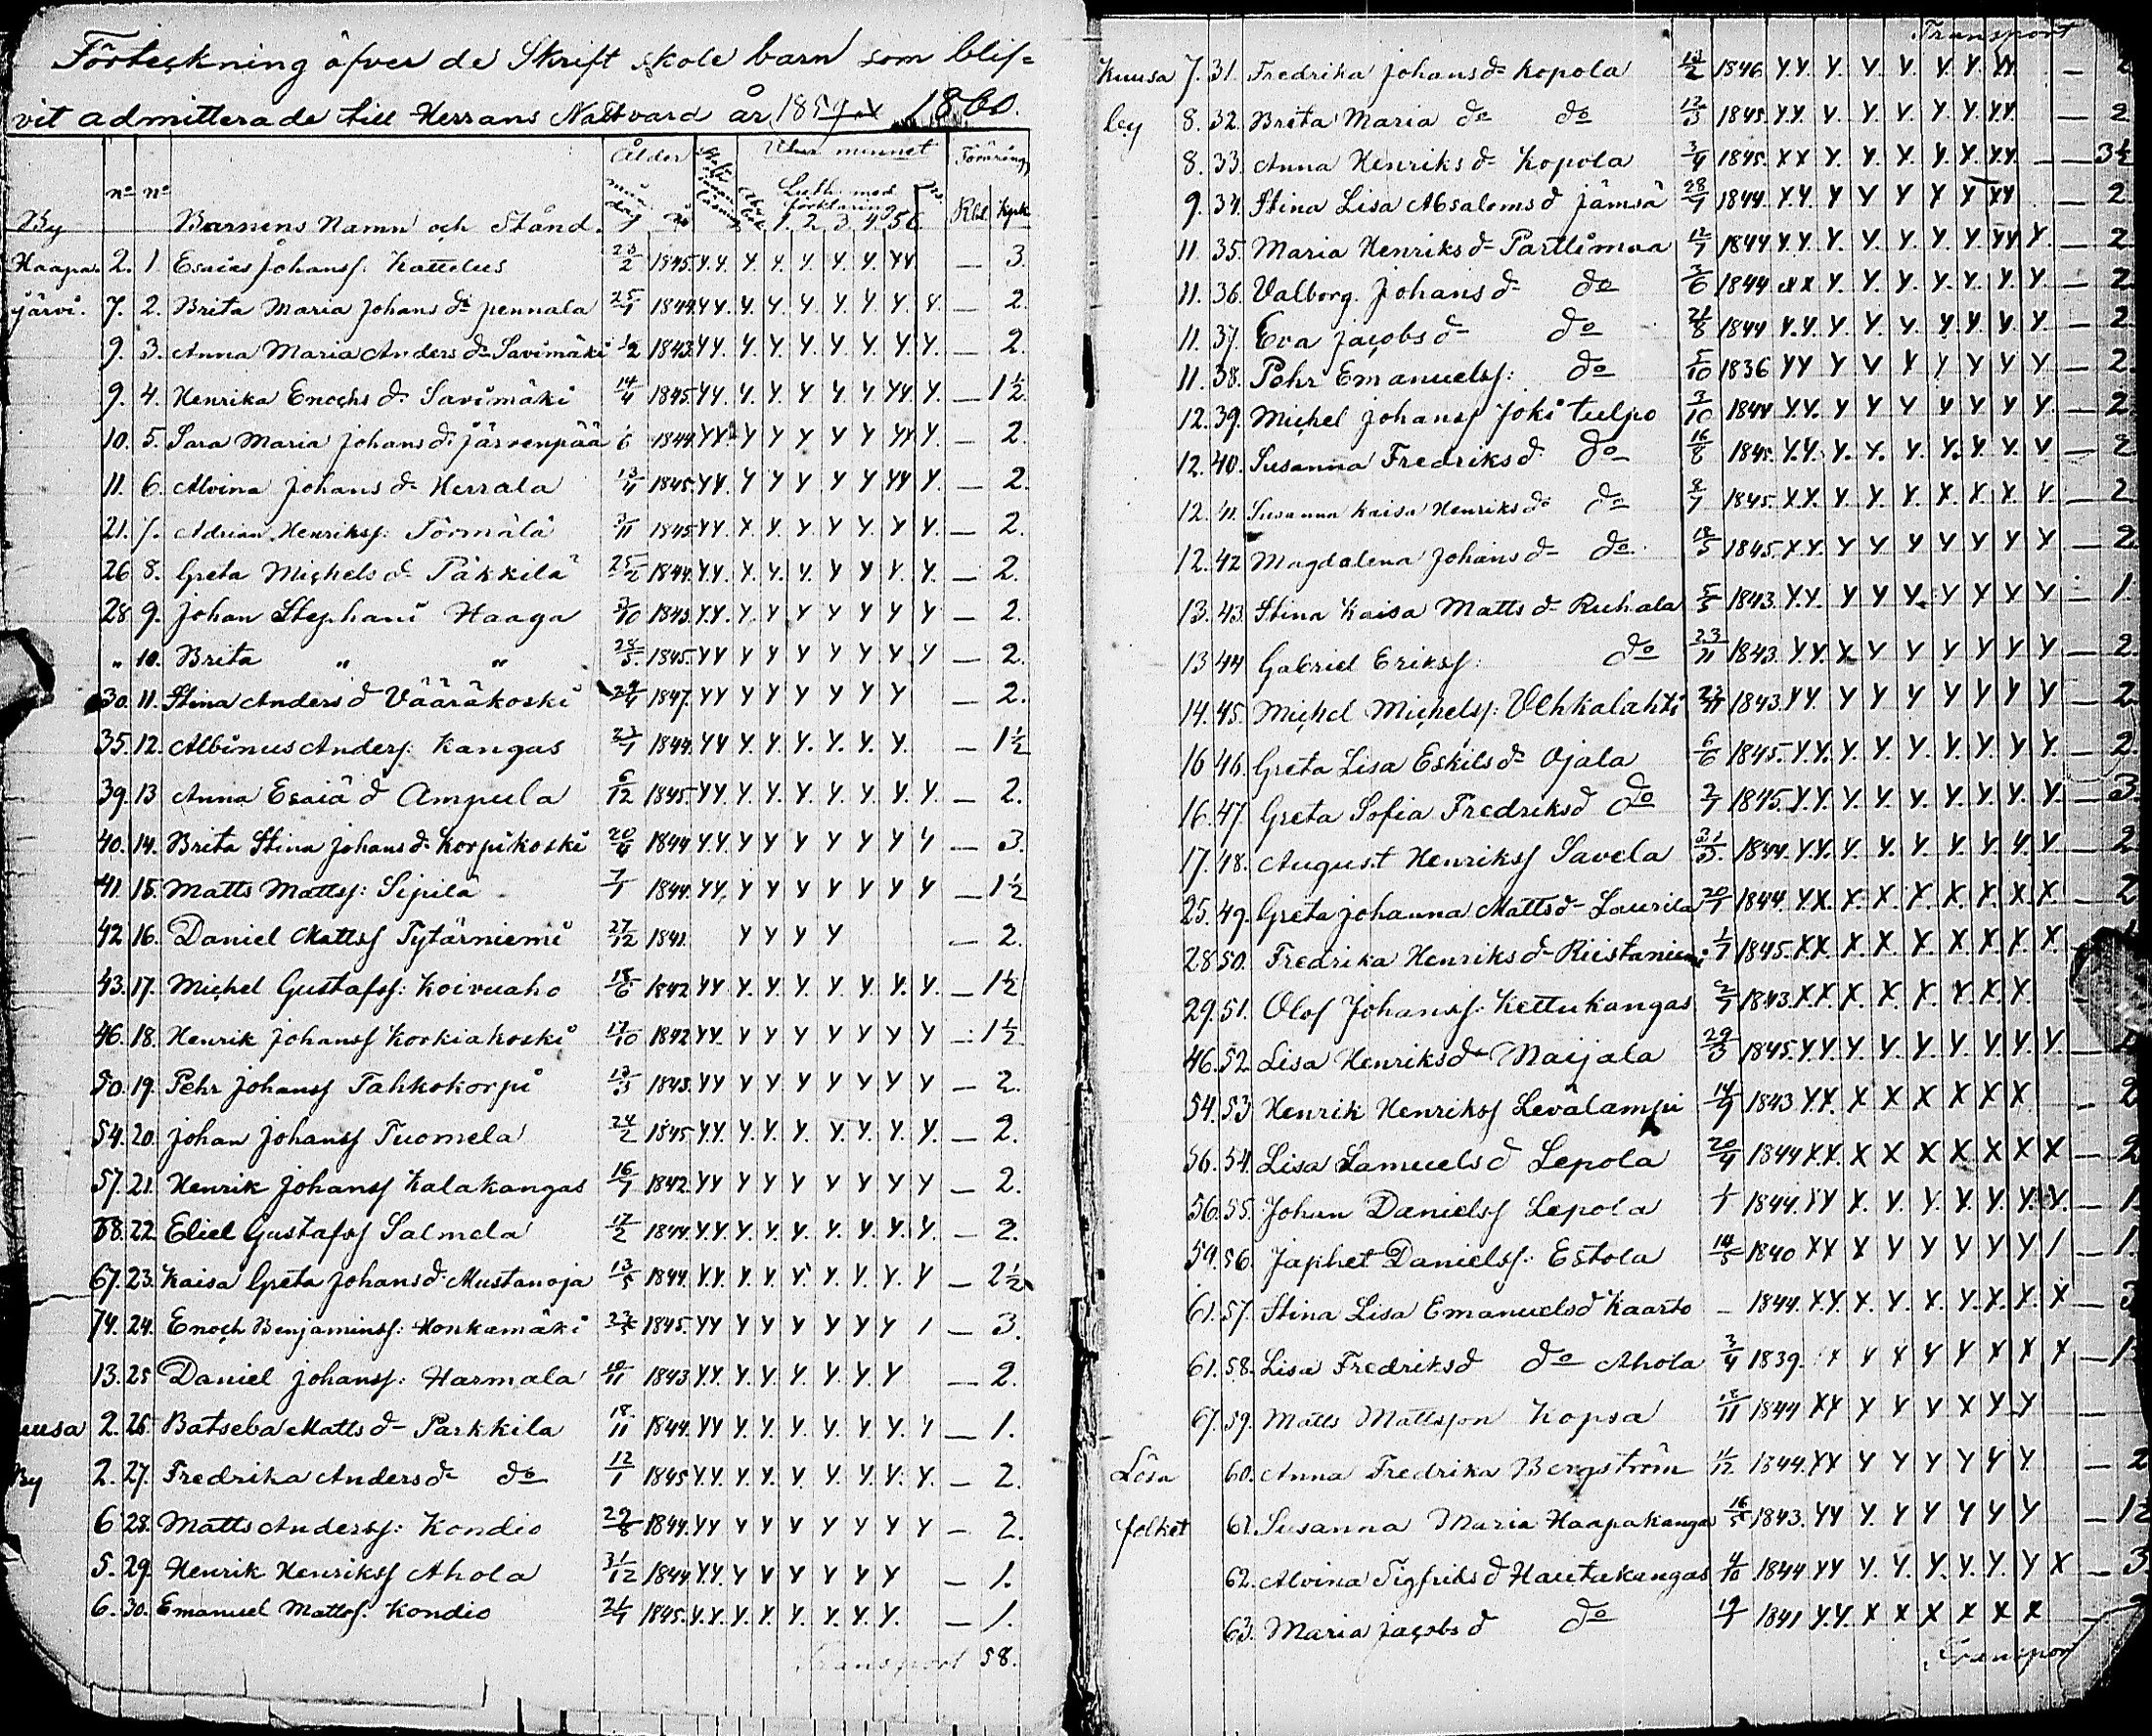 Förteckning öfver de Skrift skole barn som blif=
vit admitterade till Herrans Nattvard år 1859 1860.
Ålder Utur minnet
Luth. med förklaring
By no no Barnens Namn och Stånd. 1. 2. 3. 4. 5 6 Rbl. kpk
Haapa 2. 1. Esaias Johansf. Kattelus 23/2 1845. Y. Y. Y. Y. Y. Y. Y. YY — 3.
järvi. 7. 2. Brita Maria Johans dr pennala 1844. Y Y. Y. Y. Y. Y. Y. Y. Y. — 2.
9. 3. Anna Maria Anders dr Savimäki 1843. Y Y. Y. Y. Y. Y. Y. Y. Y. — 2.
9. 4. Henrika Enochs dr Savimäki 14/4 1845. Y Y. Y. Y. Y. Y. Y. YY. Y. — 1 1/2
10. 5. Sara Maria Johans dr Järvenpää 1844. — 2.
11. 6. Alvina Johans dr Herrala 1845. Y Y. Y Y Y Y Y YY Y. — 2.
21. 7. Adrian Henriksf: Törmälä 3/11 1845. Y Y X Y. Y. Y. Y. Y. Y. — 2.
26 8. Greta Michels dr Päkkilä 25/2 1844. Y. Y. Y. Y. Y. Y Y Y. Y. — 2.
28 9. Johan Stephans Haaga 3/10 1843. Y. Y. Y. Y Y Y Y Y Y — 2.
" 10. Brita " " 1845. Y Y Y Y Y Y Y Y Y — 2.
30. 11. Stina Anders d Vääräkoski 1847. Y Y Y Y Y Y Y Y — 2.
35. 12. Albinus Andersf. Kangas 1844. Y Y Y. Y. Y. Y. Y. Y. — 1 1/2
39. 13 Anna Esaiä d Ampula 6/12 1845. Y Y. Y. Y. Y. Y. Y. Y. Y. — 2.
40. 14. Brita Stina Johans dr Korpikoski 20/4 1844 Y. Y. Y Y Y Y Y Y Y — 3.
41. 15. Matts Mattsf: Sipilä 7/1 1844. Y Y. Y Y Y Y Y Y Y — 1 1/2
42 16. Daniel Mattsf Tytärniemi 27/12 1841. Y Y Y Y — 2.
43. 17. Michel Gustafsf: Koivuaho 18/6 1842 Y Y Y. Y. Y. Y. Y. Y. Y. — 1 1/2
46. 18. Henrik Johansf Korkiakoski 1842 Y Y. Y Y Y Y Y Y Y — 1 1/2
50. 19. Pehr Johansf Tahkokorpi 1843. Y Y Y Y Y Y Y Y Y — 2.
54. 20. Johan Johansf Tuomela 24/2 1845 Y. Y. Y. Y. Y. Y. Y. Y. Y. — 2.
57. 21. Henrik Johansf Kalakangas 16/7 1842. Y Y Y Y Y Y Y Y Y — 2.
58. 22 Eliel Gustafsf Salmela 17/2 1844. Y. Y. Y. Y. Y. Y. Y. Y. Y. — 2.
67. 23. Kaisa Greta Johans d. Mustanoja 13/5 1844. Y. Y. Y. Y. Y. Y. Y. Y. Y — 2 1/2
74. 24. Enoch Benjaminsf: Honkamäki 1845. Y Y Y Y Y Y Y Y 1 — 3.
13. 25 Daniel Johansf: Harmala 1843 Y Y. Y. Y. Y. Y. Y. Y — 2.
uusa 2. 26. Batseba Matts d- Parkkila 18/11 1844. Y Y Y. Y. Y. Y. Y. Y. Y — 1.
By 2. 27. Fredrika Anders dr do 12/1 1845 Y. Y. Y. Y. Y. Y. Y. Y. Y. — 2.
6 28. Matts Andersf: Kondio 29/8 1844. Y Y Y Y Y Y Y Y Y — 2.
5. 29. Henrik Henriksf Ahola 31/12 1844 Y. Y. Y Y Y Y Y Y — 1.
6. 30. Emanuel Mattsf. Kondio 1845. Y. Y. Y. Y. Y. Y. Y. Y. — 1.
Transport 58.
Transport
Kuusa 7. 31. Fredrika Johans dr Kopola 1846. Y. Y. Y. Y. Y. Y. Y. YY —
by 8. 32. Brita Maria do do 1845. Y. Y. Y. Y. Y. Y. Y. YY — 2
8. 33. Anna Henriks dr Kopola 1845. X X Y. Y. Y. Y. Y. YY. — 3 1/2
9. 34. Stina Lisa Absaloms d Jämsä 1844. Y. Y. Y. Y Y Y Y YY — 2.
11. 35. Maria Henriks dr Parttimaa 1844 Y. Y. Y. Y. Y. Y. Y. YY Y. — 2
11. 36. Valborg Johans dr do 1844 — 2
11. 37. Eva Jacobs dr do 21/8 1844 Y. Y. Y Y. Y. Y. Y. Y. Y. — 2.
11. 38. Pehr Emanuelsf: do 5/10 1836 Y Y Y Y Y Y Y Y Y — 2.
12. 39. Michel Johansf Jokitulpo 3/10 1844 Y Y. Y Y Y Y Y Y Y. — 2.
12. 40. Susanna Fredriks d do 16/8 1845. Y. Y. Y. Y. Y. Y. Y. Y. Y — 2
12. 41. Susanna Kaisa Henriks dr do 1845. X. X. Y. Y. Y. X. X. X. Y. — 2
12. 42 Magdalena Johans dr do 1845. X Y. Y Y Y Y Y Y Y — 2.
13. 43. Stina Kaisa Matts dr Ruhala 5/5 1843. Y. Y. Y Y Y Y Y Y Y — 1.
13 44 Gabriel Eriksf: do 23/11 1843. Y. Y. X Y Y Y Y Y Y — 2.
14. 45. Michel Michelsf: Vehkalahti 1843. Y Y Y Y Y Y Y Y Y — 2
16 46. Greta Lisa Eskils dr Ojala 6/6 1845. Y. Y. Y. Y. Y. Y. Y. Y. Y. — 2.
16. 47. Greta Sofia Fredriks d do 1845. Y. Y. Y. Y. Y. Y. Y. Y. Y. — 3.
17. 48. August Henriksf Savela 1844. Y. Y. Y. Y. Y. Y. Y. Y. Y. — 2
25. 49. Greta Johanna Matts d- Laurila 1844. Y. X. X. X. X. X. X. X. X. — 2
28 50. Fredrika Henriks d- Riistaniemi 1845. X X. X. X. X. X. X. X. X.
29. 51. Olof Johansf: Kettukangas 1843. X X. X. X. X. Y. X Y
46. 52. Lisa Henriks dr Maijala 29/3 1845. Y. Y. Y. Y. Y. Y. Y. Y. Y. —
54. 53 Henrik Henriksf Levälampi 14/9 1843 Y X. X X X X X X — 2
56. 54. Lisa Samuels d Lepola 20/4 1844 X. X. X X X X X X X — 2
56. 55. Johan Danielsf Lepola 1844. Y Y X. Y. Y. Y. Y. Y. Y. — 1
59. 56. Japhet Danielsf: Estola 14/5 1840 X X X Y Y Y Y Y 1 — 1.
61. 57. Stina Lisa Emanuels d Kaarto — 1844. X. Y. X. Y. X. Y. X. X. X — 3
61. 58. Lisa Fredriks d do Ahola 3/4 1839. — 1
67. 59. Matts Mattsson Kopsa 1844 X X Y Y Y X Y Y —
Lösa 60. Anna Fredrika Bergström 1844. Y X Y Y Y Y Y Y. — 2
folket 61. Susanna Maria Haapakangas 16/5 1843. Y Y Y. Y Y Y Y Y —
62. Alvina Sigfrids d Hautakangas 4/10 1844 Y Y Y. Y. Y. Y. Y. Y X — 3
63. Maria Jacobs d do 1841 Y. Y. X X X X X X
Transport